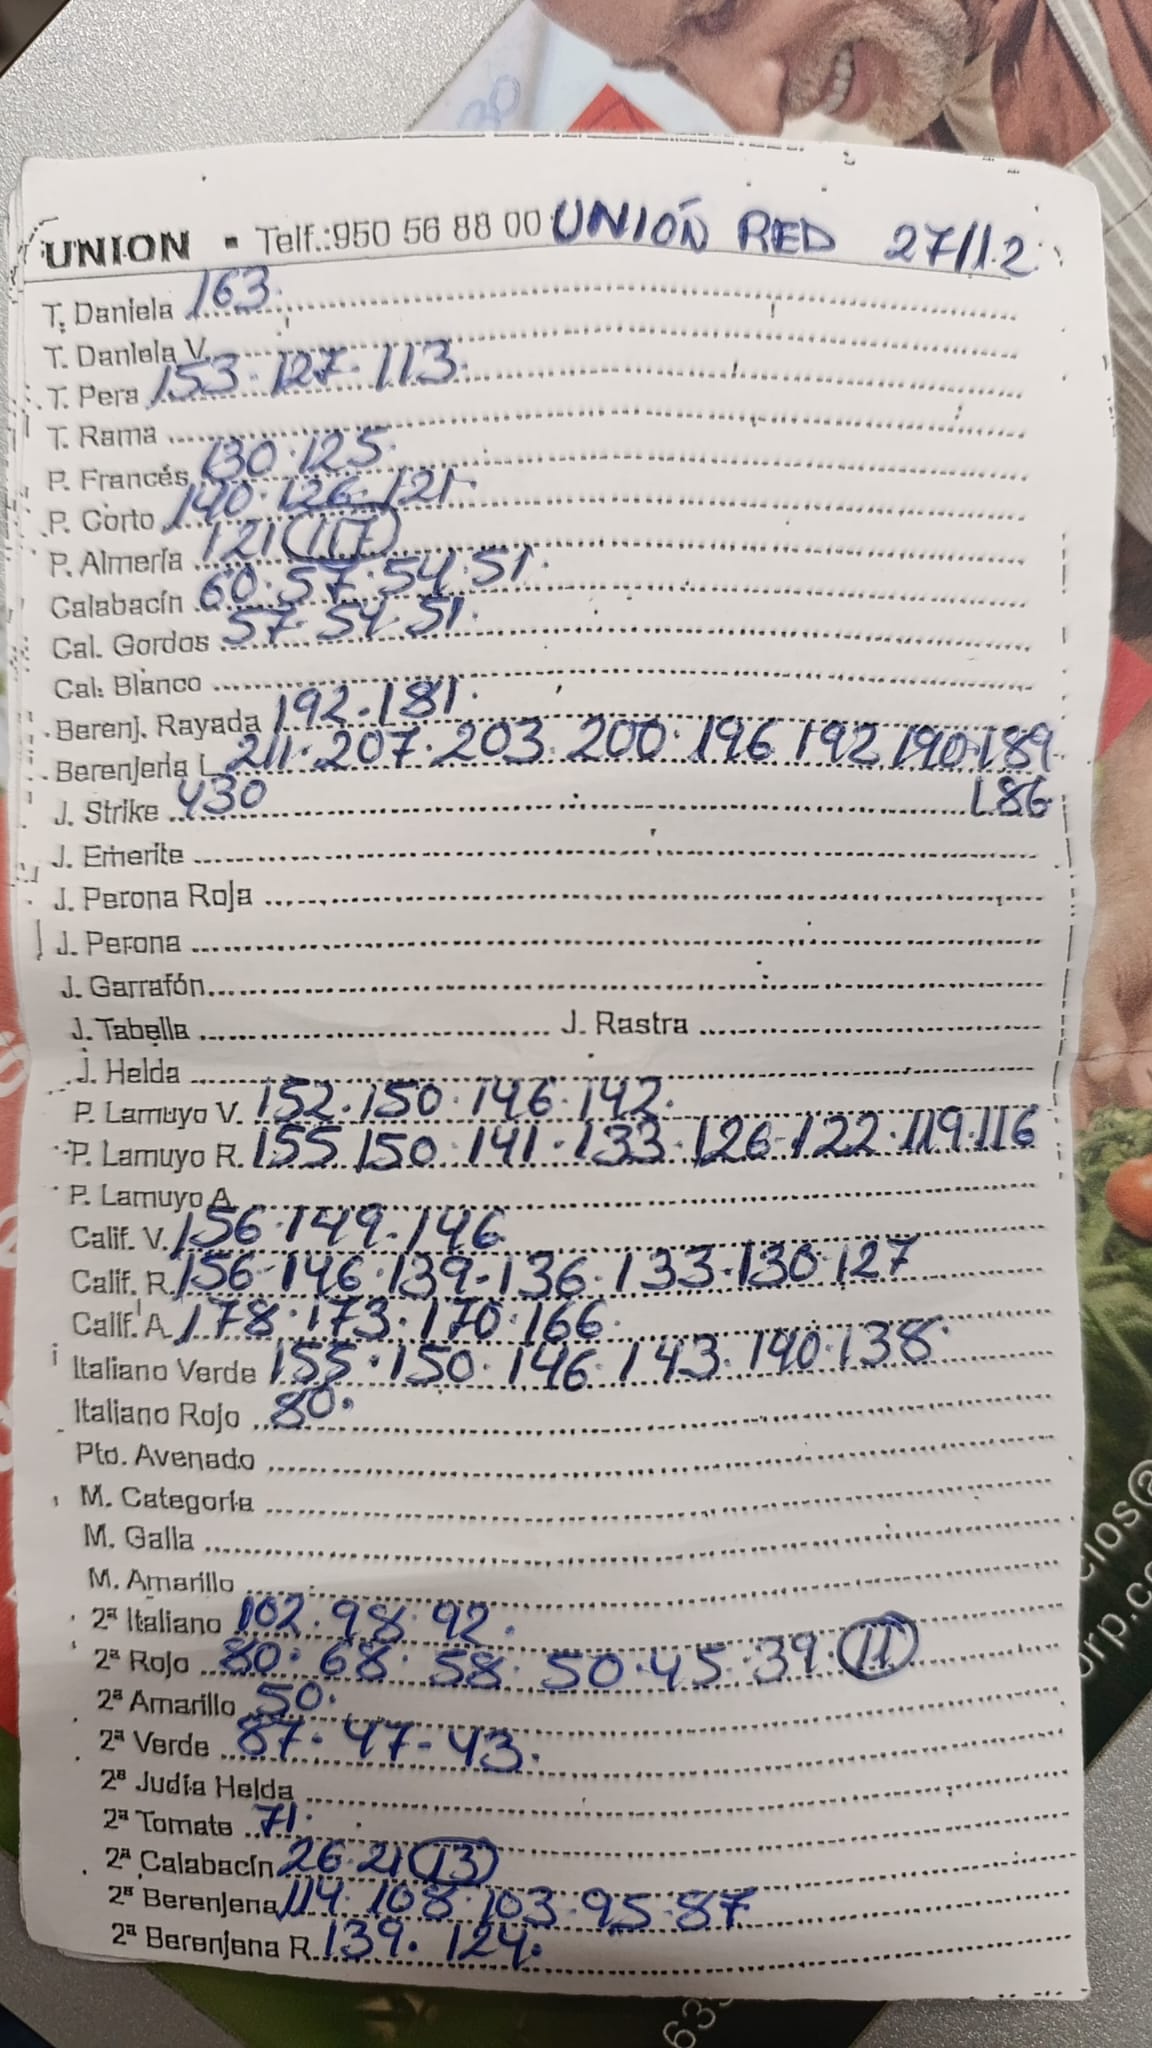 UNION - Telf.:950 56 88 00 UNIÓN RED 27/12
T. Daniela 163.
T. Daniela V.
T. Pera 153.127.113.
T. Rama
P. Francés 130.125.
P. Corto 140.126.121.
P. Almería 121 (117)
Calabacín 60.57.54.51.
Cal. Gordos 57.54.51.
Cal. Blanco
Berenj. Rayada 192.181.
Berenjena L 211.207.203.200.196 192 190.189
J. Strike 430 186
J. Emerite
J. Perona Roja
J. Perona
J. Garrafón
J. Tabella J. Rastra
J. Helda
P. Lamuyo V. 152.150.146.142.
P. Lamuyo R. 155 150.141.133.126.122.119.116
P. Lamuyo A
Calif. V. 156.149.146
Calif. R. 156.146.139.136.133.130.127
Calif. A. 178.173.170.166.
Italiano Verde 155.150.146.143.140.138.
Italiano Rojo 80.
Pto. Avenado
M. Categoría
M. Galla
M. Amarillo
2ª Italiano 102.98.92.
2ª Rojo 80.68.58.50.45.39.(11)
2ª Amarillo 50.
2ª Verde 87.47-43.
2ª Judía Helda
2ª Tomate 71.
2ª Calabacín 26.21 (13)
2ª Berenjena 114.108.103.95.87
2ª Berenjena R. 139.124.